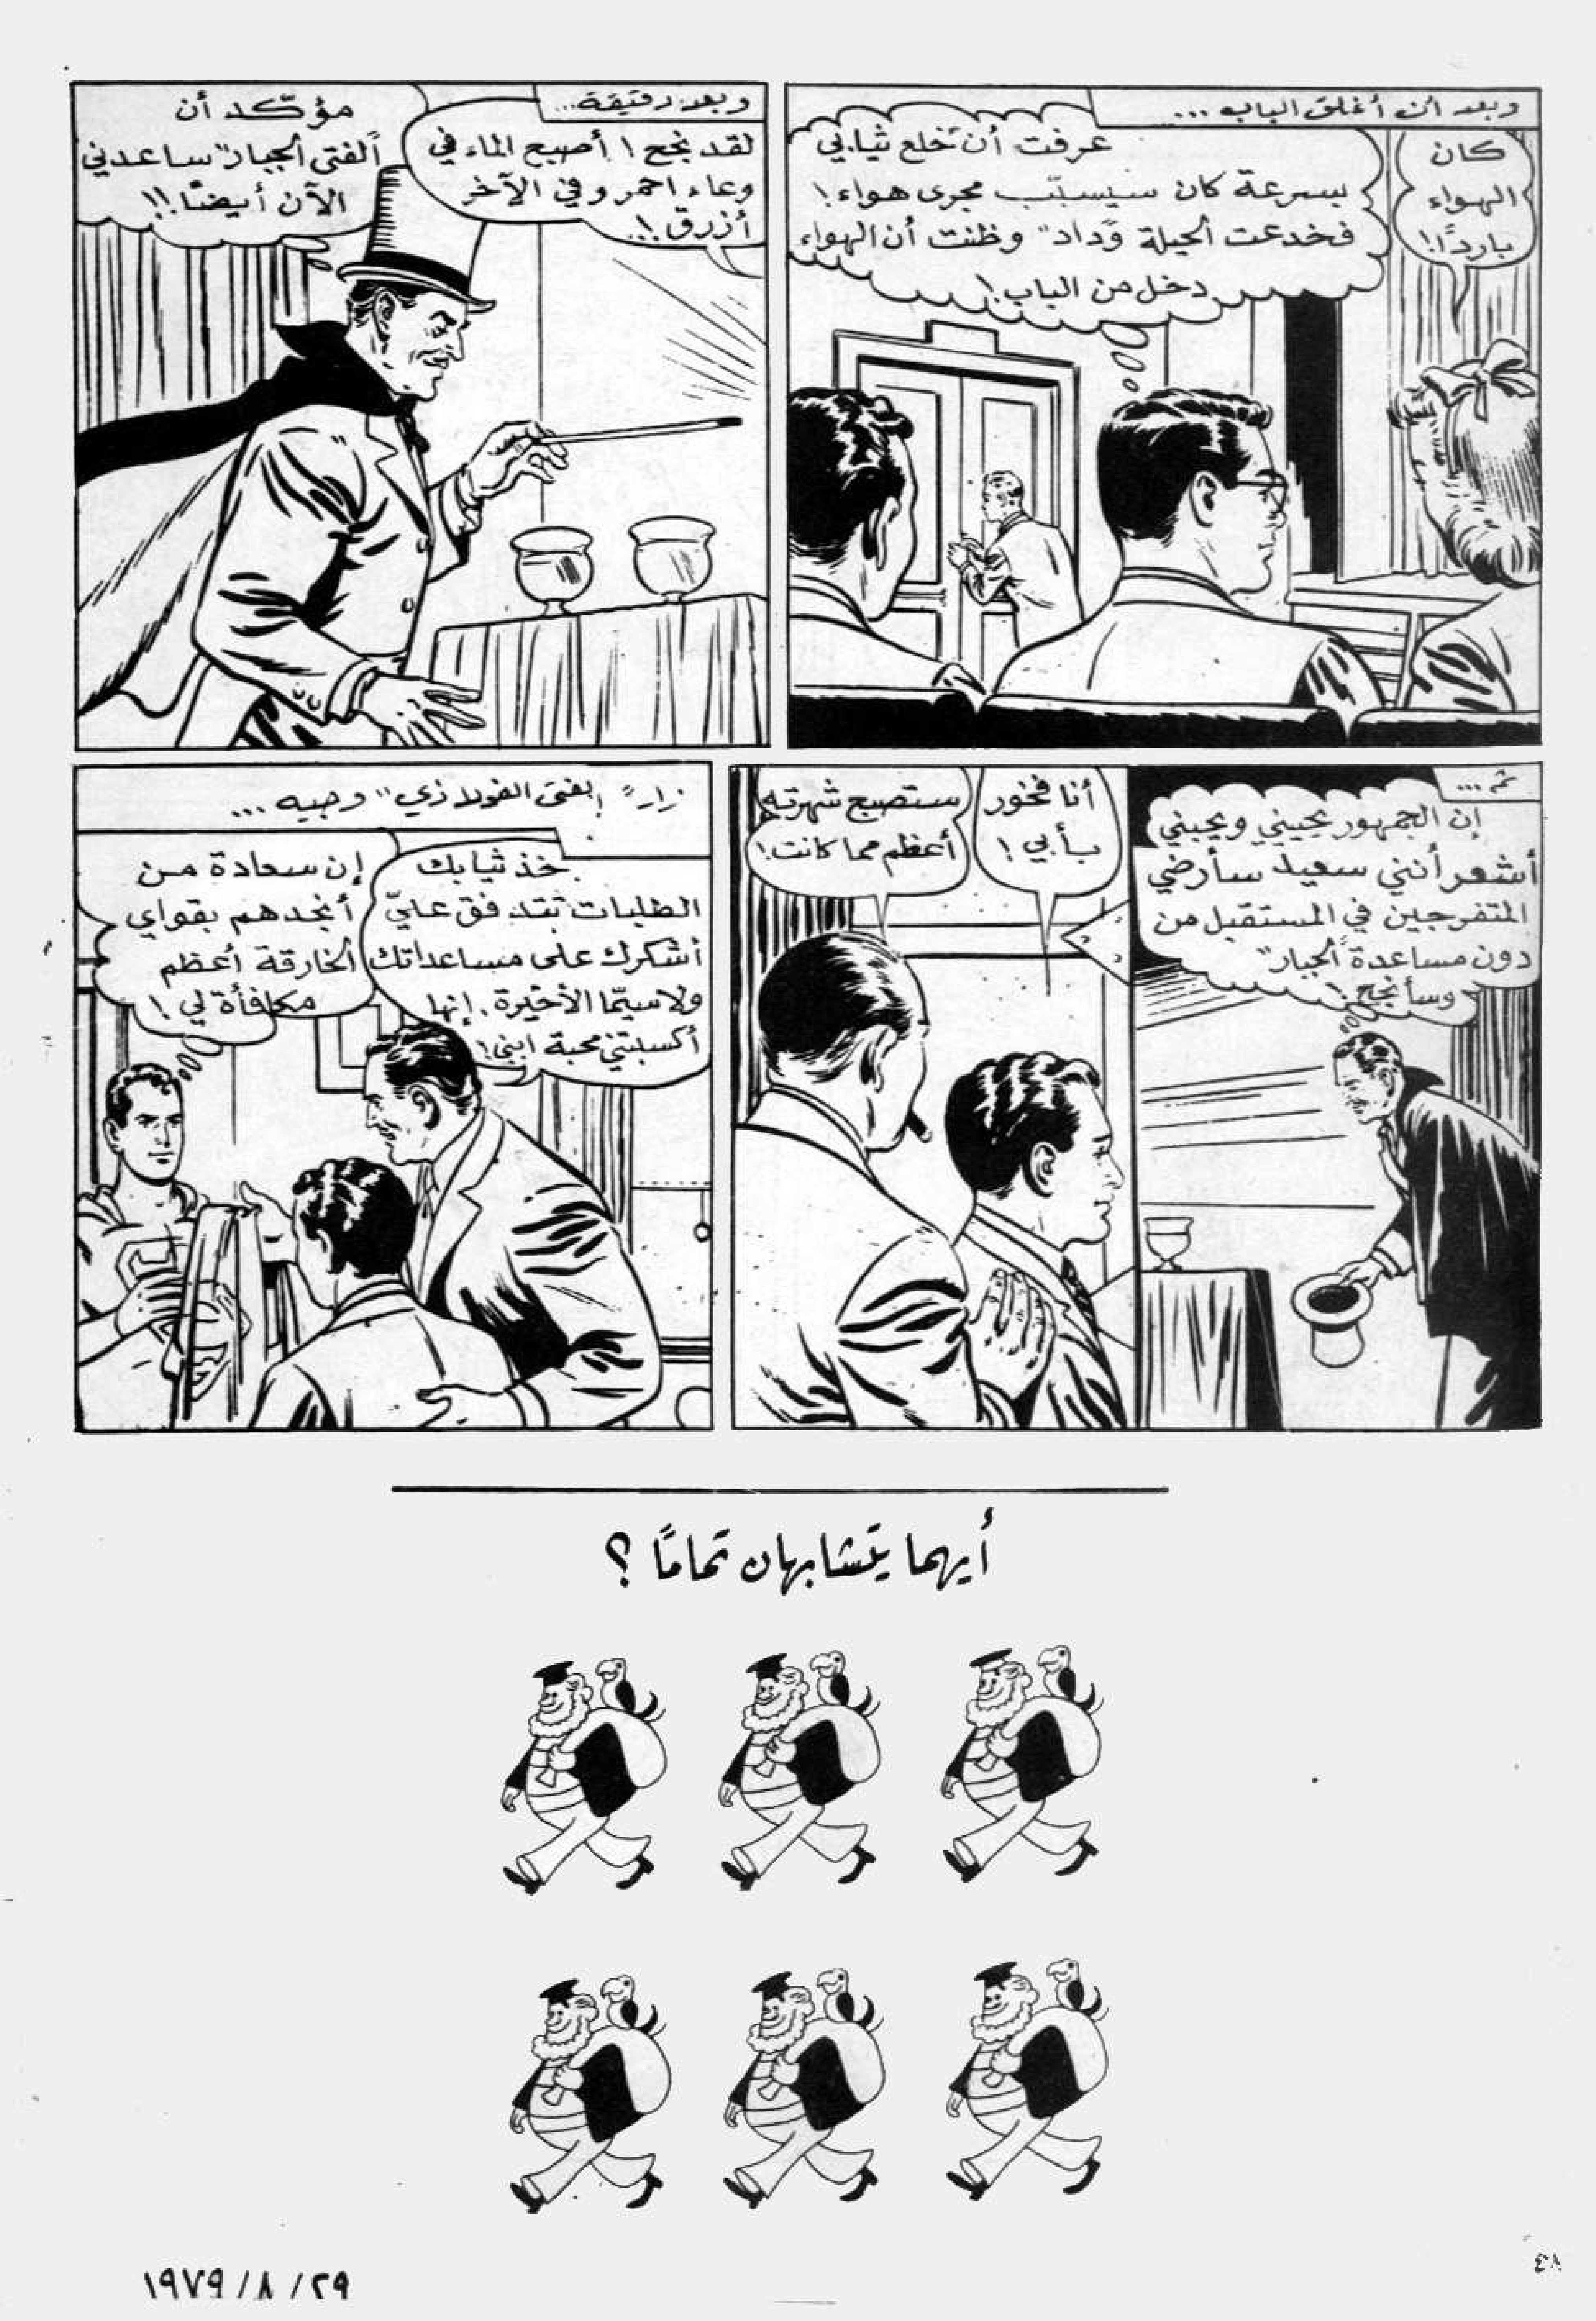 وبعد أن أغلق الباب ...
كان
الهواء
باردًا!
عرفت أن خلع ثيابي
بسرعة كان سيسبّب مجرى هواء!
فخدعت الحيلة "وداد" وظنت أن الهواء
دخل من الباب!
وبعد دقيقة...
لقد نجح! أصبح الماء في
وعاء احمر وفي الآخر
أزرق!..
مؤكّد أن
"الفتى الجبار" ساعدني
الآن أيضًا!!
ثم ...
إن الجمهور يحييني ويحبني
أشعر أنني سعيد سأرضي
المتفرجين في المستقبل من
دون مساعدة "الجبار"
وسأنجح!
أنا فخور
بأبي!
ستصبح شهرته
أعظم مما كانت!
زار "الفتى الفولاذي" وجيه ...
خذ ثيابك
الطلبات تتدفق عليّ
أشكرك على مساعداتك
ولا سيّما الأخيرة. إنها
أكسبتني محبة ابني!
إن سعادة من
أنجدهم بقواي
الخارقة أعظم
مكافأة لي!
أيهما يتشابهان تمامًا ؟
٢٩/ ٨/ ١٩٧٩